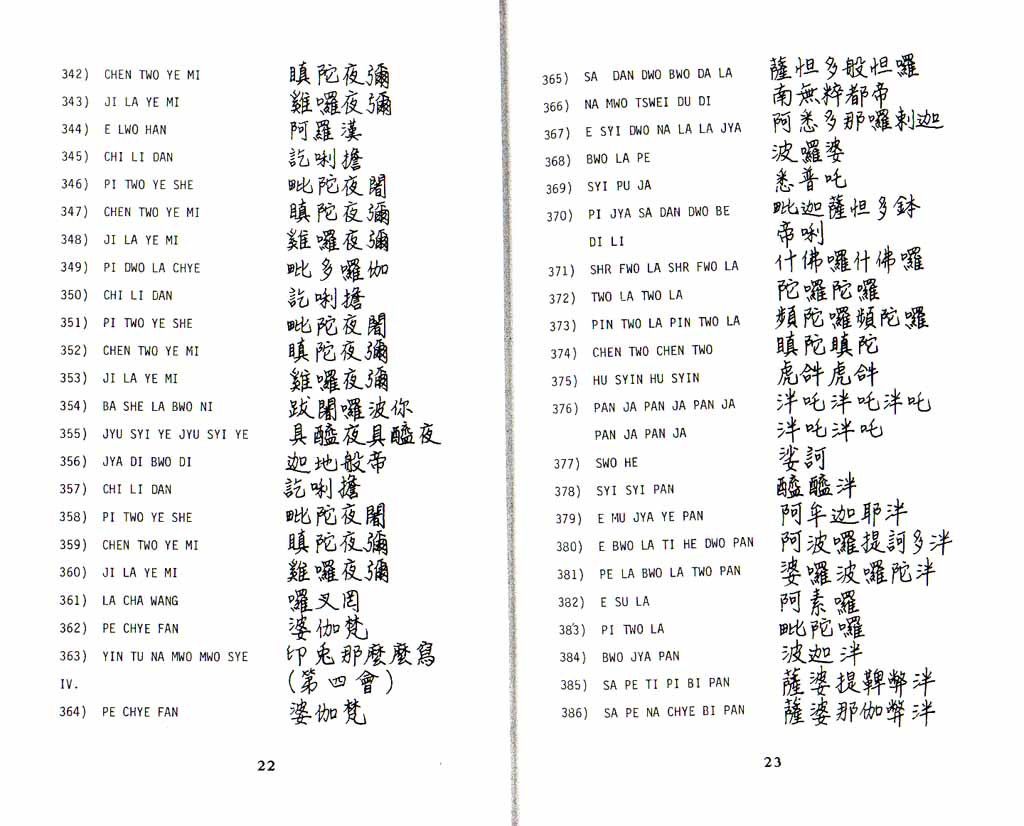 342) CHEN TWO YE MI 瞋陀夜彌
343) JI LA YE MI 雞囉夜彌
344) E LWO HAN 阿羅漢
345) CHI LI DAN 訖唎擔
346) PI TWO YE SHE 毗陀夜闍
347) CHEN TWO YE MI 瞋陀夜彌
348) JI LA YE MI 雞囉夜彌
349) PI DWO LA CHYE 毗多囉伽
350) CHI LI DAN 訖唎擔
351) PI TWO YE SHE 毗陀夜闍
352) CHEN TWO YE MI 瞋陀夜彌
353) JI LA YE MI 雞囉夜彌
354) BA SHE LA BWO NI 跋闍囉波你
355) JYU SYI YE JYU SYI YE 具醯夜具醯夜
356) JYA DI BWO DI 迦地般帝
357) CHI LI DAN 訖唎擔
358) PI TWO YE SHE 毗陀夜闍
359) CHEN TWO YE MI 瞋陀夜彌
360) JI LA YE MI 雞囉夜彌
361) LA CHA WANG 囉叉罔
362) PE CHYE FAN 婆伽梵
363) YIN TU NA MWO MWO SYE 印兎那麼麼寫
IV. (第四會)
364) PE CHYE FAN 婆伽梵
22
365) SA DAN DWO BWO DA LA 薩怛多般怛囉
366) NA MWO TSWEI DU DI 南無粹都帝
367) E SYI DWO NA LA LA JYA 阿悉多那囉剌迦
368) BWO LA PE 波囉婆
369) SYI PU JA 悉普吒
370) PI JYA SA DAN DWO BE 毗迦薩怛多鉢
DI LI 帝唎
371) SHR FWO LA SHR FWO LA 什佛囉什佛囉
372) TWO LA TWO LA 陀囉陀囉
373) PIN TWO LA PIN TWO LA 頻陀囉頻陀囉
374) CHEN TWO CHEN TWO 瞋陀瞋陀
375) HU SYIN HU SYIN 虎𤙖虎𤙖
376) PAN JA PAN JA PAN JA 泮吒泮吒泮吒
PAN JA PAN JA 泮吒泮吒
377) SWO HE 娑訶
378) SYI SYI PAN 醯醯泮
379) E MU JYA YE PAN 阿牟迦耶泮
380) E BWO LA TI HE DWO PAN 阿波囉提訶多泮
381) PE LA BWO LA TWO PAN 婆囉波囉陀泮
382) E SU LA 阿素囉
383) PI TWO LA 毗陀囉
384) BWO JYA PAN 波迦泮
385) SA PE TI PI BI PAN 薩婆提鞞弊泮
386) SA PE NA CHYE BI PAN 薩婆那伽弊泮
23